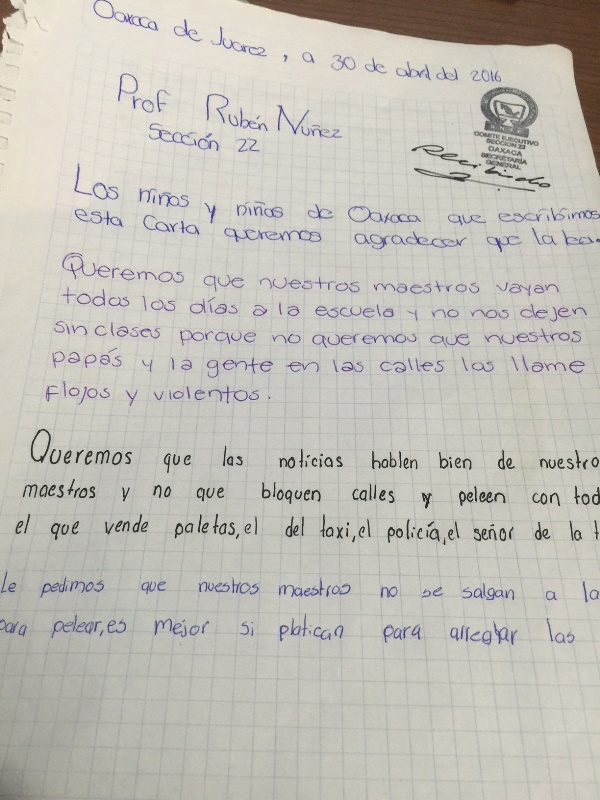 Oaxaca de Juarez, a 30 de abril del 2016
Prof Rubén Nuñez
Sección 22
COMITE EJECUTIVO
SECCION 22
OAXACA
SECRETARÍA
GENERAL
Recibido
Los niños y niños de Oaxaca que escribimos
esta Carta queremos agradecer que la ba
Queremos que nuestros maestros vayan
todos los días a la escuela y no nos dejen
sin clases porque no queremos que nuestros
papás y la gente en las calles los llame
flojos y violentos.
Queremos que las noticias hablen bien de nuestro
maestros y no que bloquen calles y peleen con tod
el que vende paletas, el del taxi, el policía, el señor de la t
Le pedimos que nuestros maestros no se salgan a la
para pelear, es mejor si platican para arreglar las